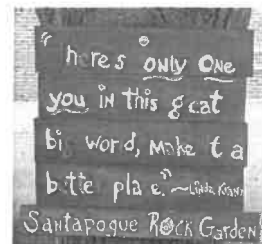 "here's only one
you in this g eat
bi word, make t a
b tte pla e." ~Linda
Santapogue Rock Garden